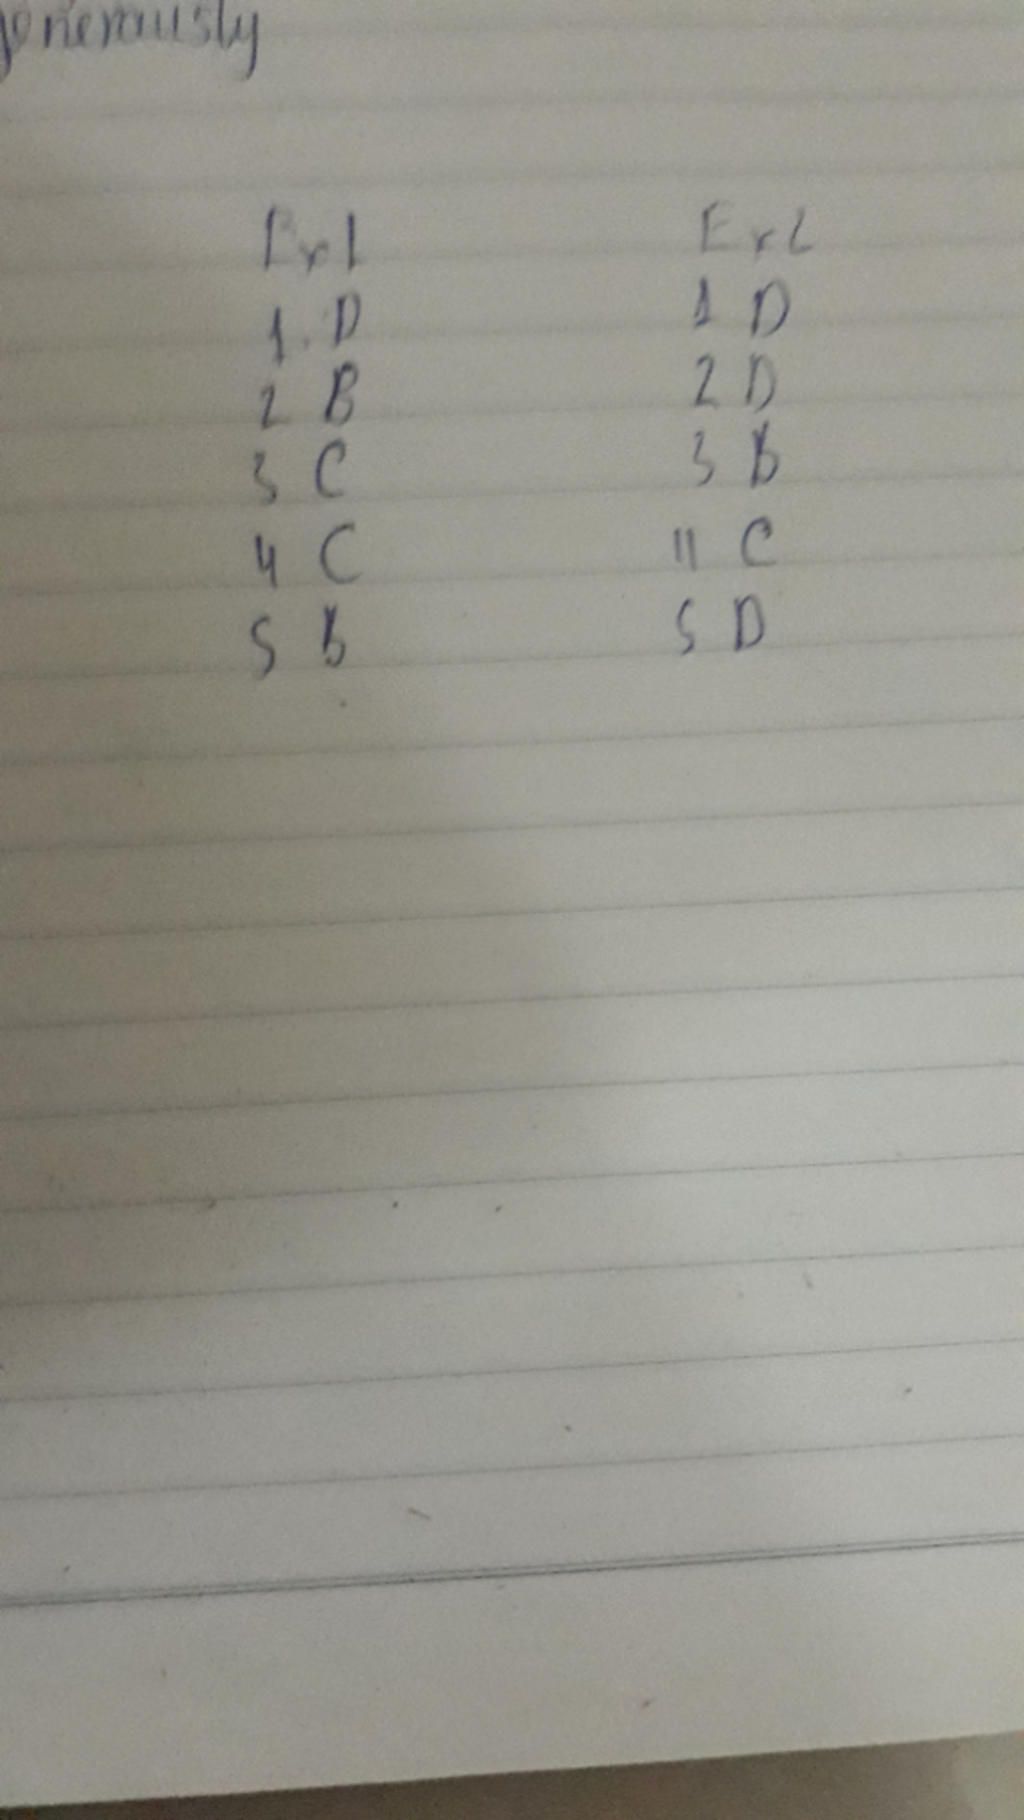 generously
Ex1
1. D
2 B
3 C
4 C
5 B
Ex2
1 D
2 D
3 B
4 C
5 D